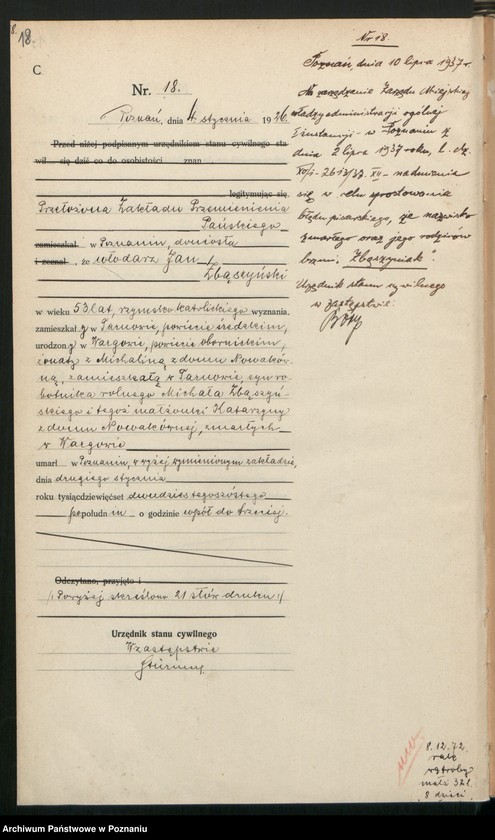 8.
18.
C
Nr. 18.
Poznań, dnia 4. stycznia 1926.
Przed niżej podpisanym urzędnikiem stanu cywilnego sta
wił się dziś co do osobistości znan
legitymując się.
Przełożona Zakładu Przemienienia
Pańskiego
zamieszkał w Poznaniu, doniosła
i zeznał, że włodarz Jan
Zbąszyński
w wieku 53 lat, rzymsko katolickiego wyznania,
zamieszkały w Tarnowie, powiecie średzkim,
urodzony w Wargowie, powiecie obornickim,
żonaty z Michaliną z domu Nowaków-
ną, zamieszkałą w Tarnowie, syn ro-
botnika rolnego Michała Zbąszyń-
skiego i tegoż małżonki Katarzyny
z domu Nowakównej, zmarłych
w Wargowie
umarł w Poznaniu, w wyżej wymienionym zakładzie,
dnia drugiego stycznia
roku tysiącdziewięćset dwudziestegoszóstego
po połudn iu o godzinie wpół do trzeciej.
Odczytano, przyjęto i
/: Powyżej skreślono 21 słów druku :/
Urzędnik stanu cywilnego
W zastępstwie
Nr 18.
Poznań, dnia 10 lipca 1937 r.
Na zarządzenie Zarządu Miejskiego
władzy administracji ogólnej
I instancji - w Poznaniu z
dnia 2 lipca 1937 roku, L. dz.
2613/37. XV - nadmienia
się w celu sprostowania
błędu pisarskiego, że nazwisko
zmarłego oraz jego rodziców
brzmi: "Zbączyniak"
Urzędnik stanu cywilnego
w zastępstwie:
8.12.72.
wątroby
małż 32 l.
8 dzieci
Archiwum Państwowe w Poznaniu